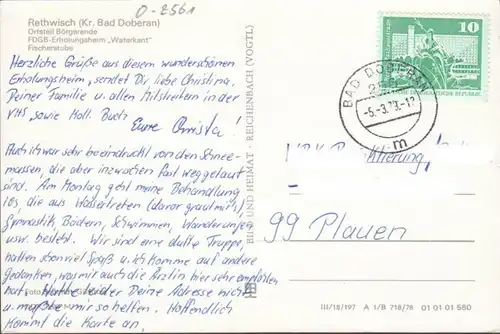 Rethwisch (Kr. Bad Doberan)
Ortsteil Börgerende
FDGB-Erholungsheim „Waterkant"
Fischerstube
O-2561
Herzliche Grüße aus diesem wunderschönen
Erholungsheim, sendet Dir liebe Christina,
Deiner Familie u. allen Mitstreitern in der
VHS sowie Koll.
Eure Christa!
Auch ich war sehr beeindruckt von den Schnee-
massen, die aber inzwischen fast weg getaut
sind. Am Montag geht meine Behandlung
los, die aus Wassertreten (davor graut mir!),
Gymnastik, Bädern, Schwimmen, Wanderungen
usw. besteht. Wir sind eine dufte Truppe,
halten schon viel Spaß u. ich komme auf andere
Gedanken, was mir auch die Ärztin hier sehr empfohlen
hat. Hatte leider Deine Adresse nicht
u. mußte mir so helfen. Hoffentlich
kommt die Karte an.
BILD UND HEIMAT · REICHENBACH (VOGTL)
10
BAD DOBERAN
-5.-3.79.-12
m
99 Plauen
III/18/197 A 1/B 718/78 01 01 01 560